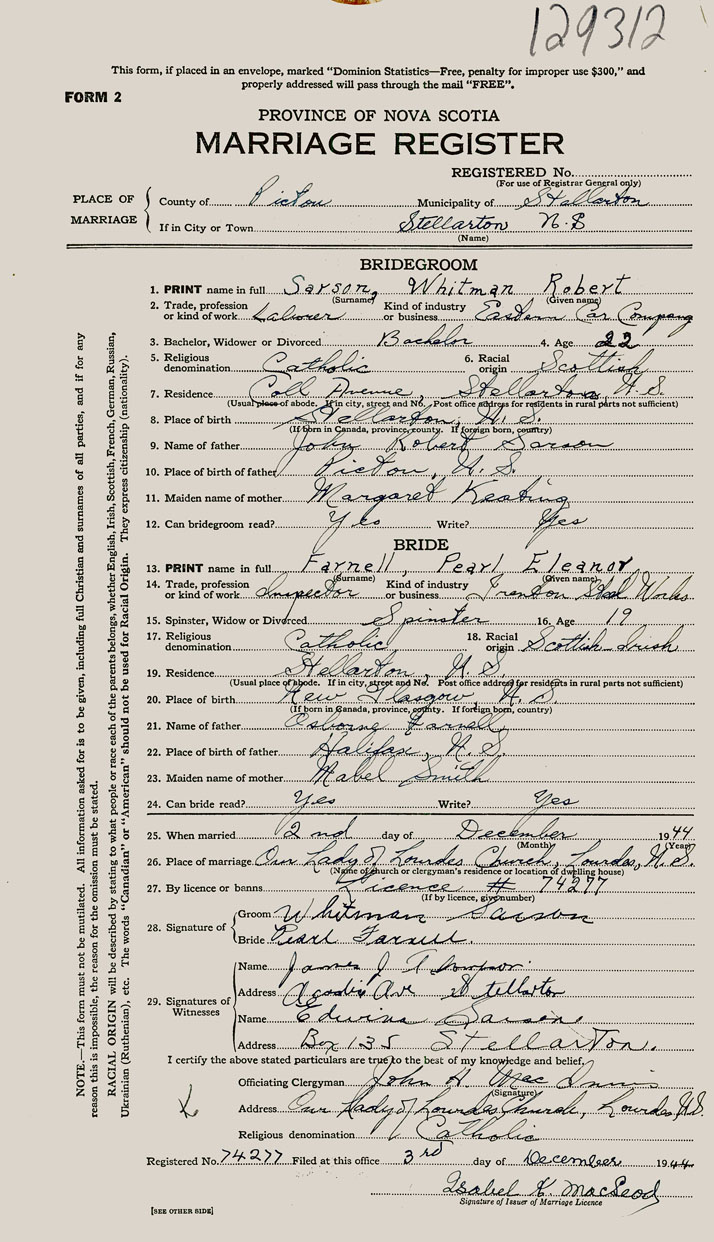 129312
This form, if placed in an envelope, marked “Dominion Statistics—Free, penalty for improper use $300,” and
properly addressed will pass through the mail “FREE”.
FORM 2
PROVINCE OF NOVA SCOTIA
MARRIAGE REGISTER
REGISTERED No.
(For use of Registrar General only)
PLACE OF MARRIAGE
County of Pictou Municipality of Stellarton
If in City or Town Stellarton N.S
(Name)
BRIDEGROOM
1. PRINT name in full Sarson, Whitman Robert
(Surname) (Given name)
2. Trade, profession or kind of work Laborer Kind of industry or business Eastern Car Company
3. Bachelor, Widower or Divorced Bachelor 4. Age 22
5. Religious denomination Catholic 6. Racial origin Scottish
7. Residence Coll Avenue, Stellarton, N.S.
(Usual place of abode. If in city, street and No. Post office address for residents in rural parts not sufficient)
8. Place of birth Stellarton, N.S.
(If born in Canada, province, county. If foreign born, country)
9. Name of father John Robert Sarson
10. Place of birth of father Pictou, N.S.
11. Maiden name of mother Margaret Keating
12. Can bridegroom read? Yes Write? Yes
BRIDE
13. PRINT name in full Farnell, Pearl Eleanor
(Surname) (Given name)
14. Trade, profession or kind of work Inspector Kind of industry or business Trenton Steel Works
15. Spinster, Widow or Divorced Spinster 16. Age 19
17. Religious denomination Catholic 18. Racial origin Scottish-Irish
19. Residence Stellarton, N.S.
(Usual place of abode. If in city, street and No. Post office address for residents in rural parts not sufficient)
20. Place of birth New Glasgow N.S.
(If born in Canada, province, county. If foreign born, country)
21. Name of father Osborne Farnell
22. Place of birth of father Halifax, N.S.
23. Maiden name of mother Mabel Smith
24. Can bride read? Yes Write? Yes
25. When married 2nd day of December 1944
(Month) (Year)
26. Place of marriage Our Lady of Lourdes Church, Lourdes, N.S.
(Name of church or clergyman's residence or location of dwelling house)
27. By licence or banns Licence # 74277
(If by licence, give number)
28. Signature of
Groom Whitman Sarson
Bride Pearl Farnell.
29. Signatures of Witnesses
Name James J Thompson
Address Acadia Ave Stellarton
Name Edwina Sarson
Address Box 135 Stellarton.
I certify the above stated particulars are true to the best of my knowledge and belief.
Officiating Clergyman John H. MacInnis
(Signature)
Address Our Lady of Lourdes Church, Lourdes N.S.
Religious denomination Catholic
Registered No. 74277 Filed at this office 3rd day of December 1944
Isabel K. MacLeod
Signature of Issuer of Marriage Licence
[SEE OTHER SIDE]
NOTE.—This form must not be mutilated. All information asked for is to be given, including full Christian and surnames of all parties, and if for any
reason this is impossible, the reason for the omission must be stated.
RACIAL ORIGIN will be described by stating to what people or race each of the parents belongs, whether English, Irish, Scottish, French, German, Russian,
Ukrainian (Ruthenian), etc. The words “Canadian” or “American” should not be used for Racial Origin. They express citizenship (nationality).